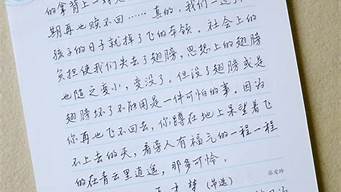 的拿着上一
朝再也赎不回……真的，我们一过了
孩子的日子就掉了飞的本领。社会上的
负担使我们失去了翅膀，思想上的翅膀
也随之变小，变没了，但没了翅膀或是
翅膀坏了不能用是一件可怕的事。因为
你再也飞不回去，你蹲在地上呆望着飞
不上去的天，看旁人有福气的一程一程
的在青云里逍遥，那多可怜。